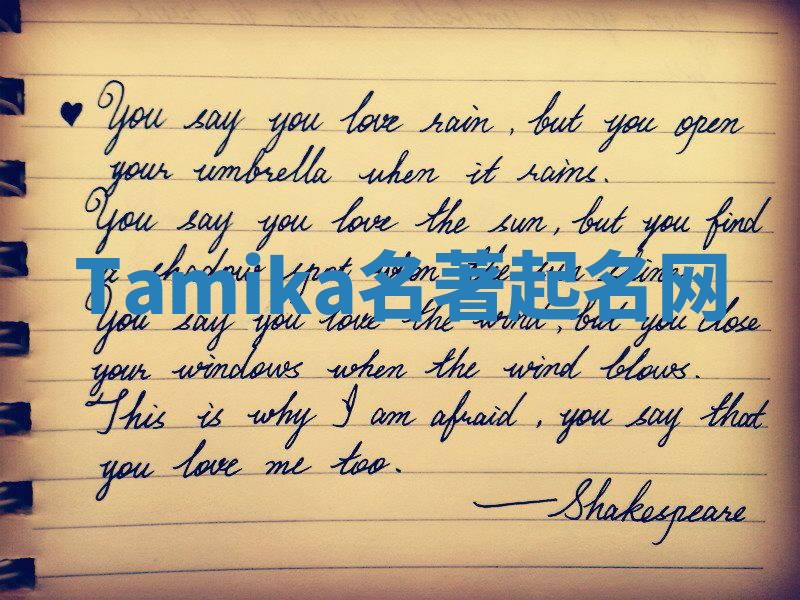 You say you love rain, but you open
your umbrella when it rains.
You say you love the sun, but you find
a shadow spot when the sun shines.
Tamika名著起名网
You say you love the wind, but you close
your windows when the wind blows.
This is why I am afraid, you say that
you love me too.
—Shakespeare